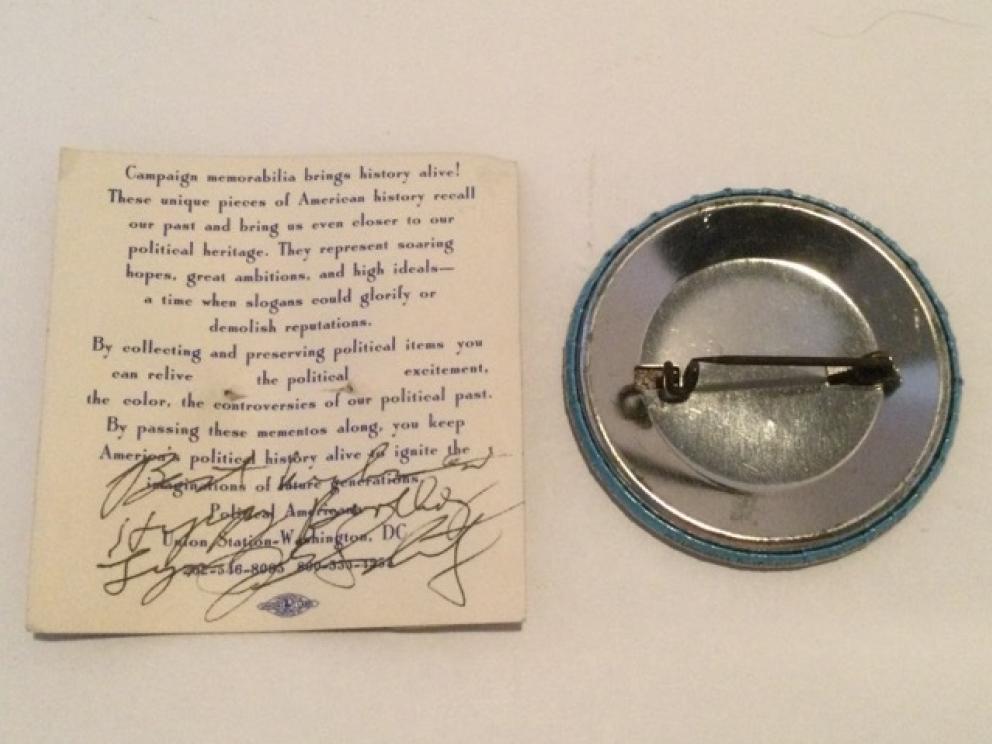 Campaign memorabilia brings history alive!
These unique pieces of American history recall
our past and bring us even closer to our
political heritage. They represent soaring
hopes, great ambitions, and high ideals—
a time when slogans could glorify or
demolish reputations.
By collecting and preserving political items you
can relive the political excitement,
the color, the controversies of our political past.
By passing these mementos along, you keep
America's political history alive to ignite the
imaginations of future generations.
Political Americana
Union Station-Washington, DC
Best Wishes
Happy Birthday